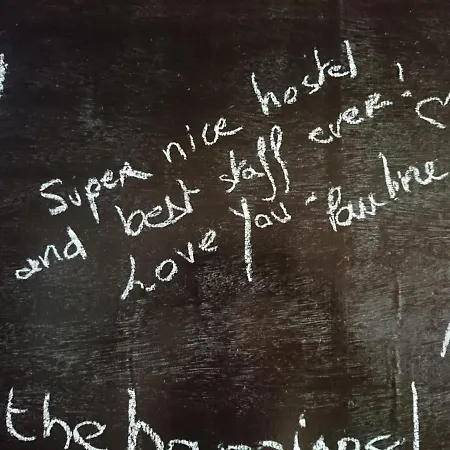 Super nice hostel
and best staff ever! ♡
Love you - Pauline
the